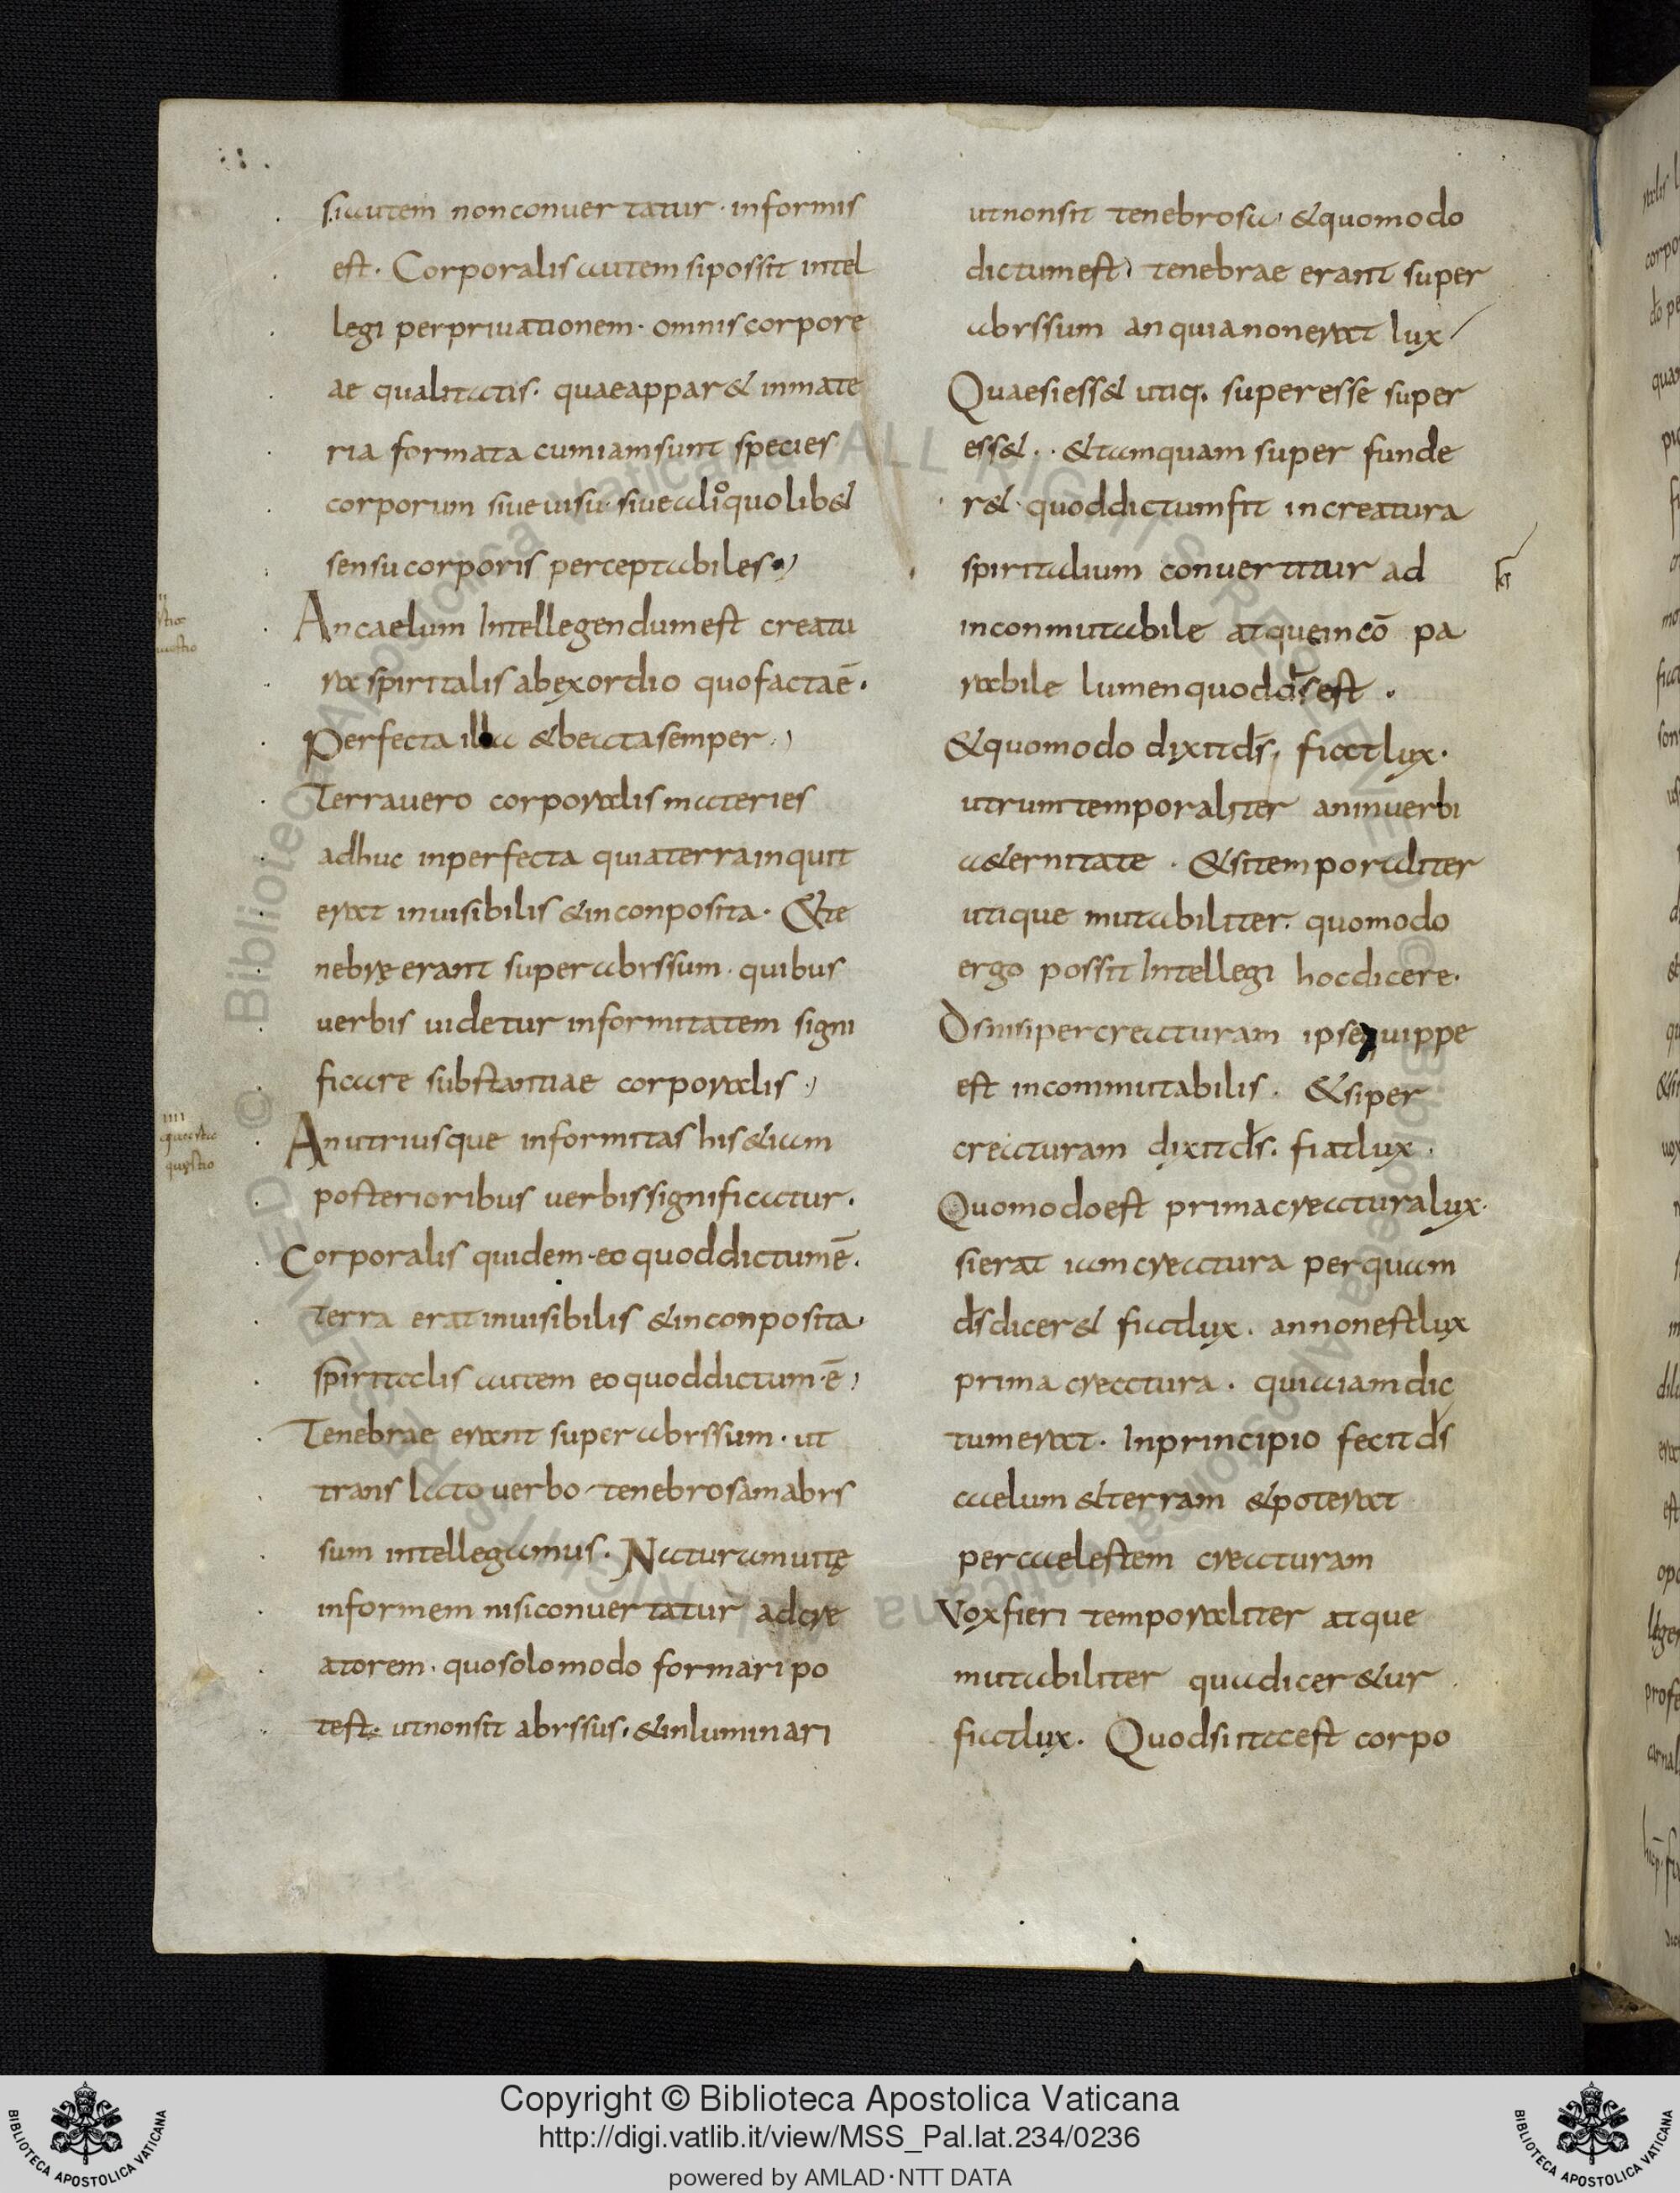 si autem non conuertatur · informis
est · Corporalis autem si possit intel
legi per priuationem · omnis corpore
ae qualitatis · quae appar& in mate
ria formata cum iam sunt species
corporum siue uisu · siue alioquolib&
sensu corporis perceptabiles ·
An caelum Intellegendum est creatu
ra spiritalis ab exordio quo facta ē ·
Perfecta illa & beata semper ·
Terra uero corporalis materies
adhuc inperfecta quia terra inquit
erat inuisibilis & inconposita · & te
nebrę erant super abyssum · quibus
uerbis uidetur informitatem signi
ficare substantiae corporalis ·
IIII
quarta
quęstio
An utriusque informitas his & iam
posterioribus uerbis significatur ·
Corporalis quidem · eo quod dictum ē ·
Terra erat inuisibilis & inconposita ·
spiritalis autem eo quod dictum · ē ·
Tenebrae erant super abyssum · ut
translato uerbo tenebrosam abys
sum intellegamus · Naturam uitę
informem nisi conuertatur ad cre
atorem · quo solo modo formari po
test · ut non sit abyssus · & inluminari
ut non sit tenebrosa · & quomodo
dictum est · tenebrae erant super
abyssum an quia non erat lux
Quae si ess& utiq. superesse super
ess& · & tamquam super funde
r& · quod dictum fit in creatura
spiritalium conuertitur ad
inconmutabile atque incō pa
rabile lumen quod ds̄ est ·
& quomodo dixit ds̄ · fiat lux ·
utrum temporaliter an in uerbi
a&ernitate · & si temporaliter
utique mutabiliter · quomodo
ergo possit Intellegi hoc dicere ·
Ds nisi per creaturam ipse quippe
est incommutabilis · & si per
creaturam dixit ds̄ · fiat lux ·
Quomodo est prima creatura lux ·
si erat iam creatura per quam
ds̄ dicer& fiat lux · an non est lux
prima creatura · quia iam dic
tum erat · In principio fecit ds̄
caelum & terram & poterat
per caelestem creaturam
Vox fieri temporaliter atque
mutabiliter qua dicer&ur
fiat lux · Quod si ita est corpo
© Biblioteca Apostolica Vaticana ALL RIGHTS RESERVED
Copyright © Biblioteca Apostolica Vaticana
http://digi.vatlib.it/view/MSS_Pal.lat.234/0236
powered by AMLAD · NTT DATA
BIBLIOTECA APOSTOLICA VATICANA
BIBLIOTECA APOSTOLICA VATICANA